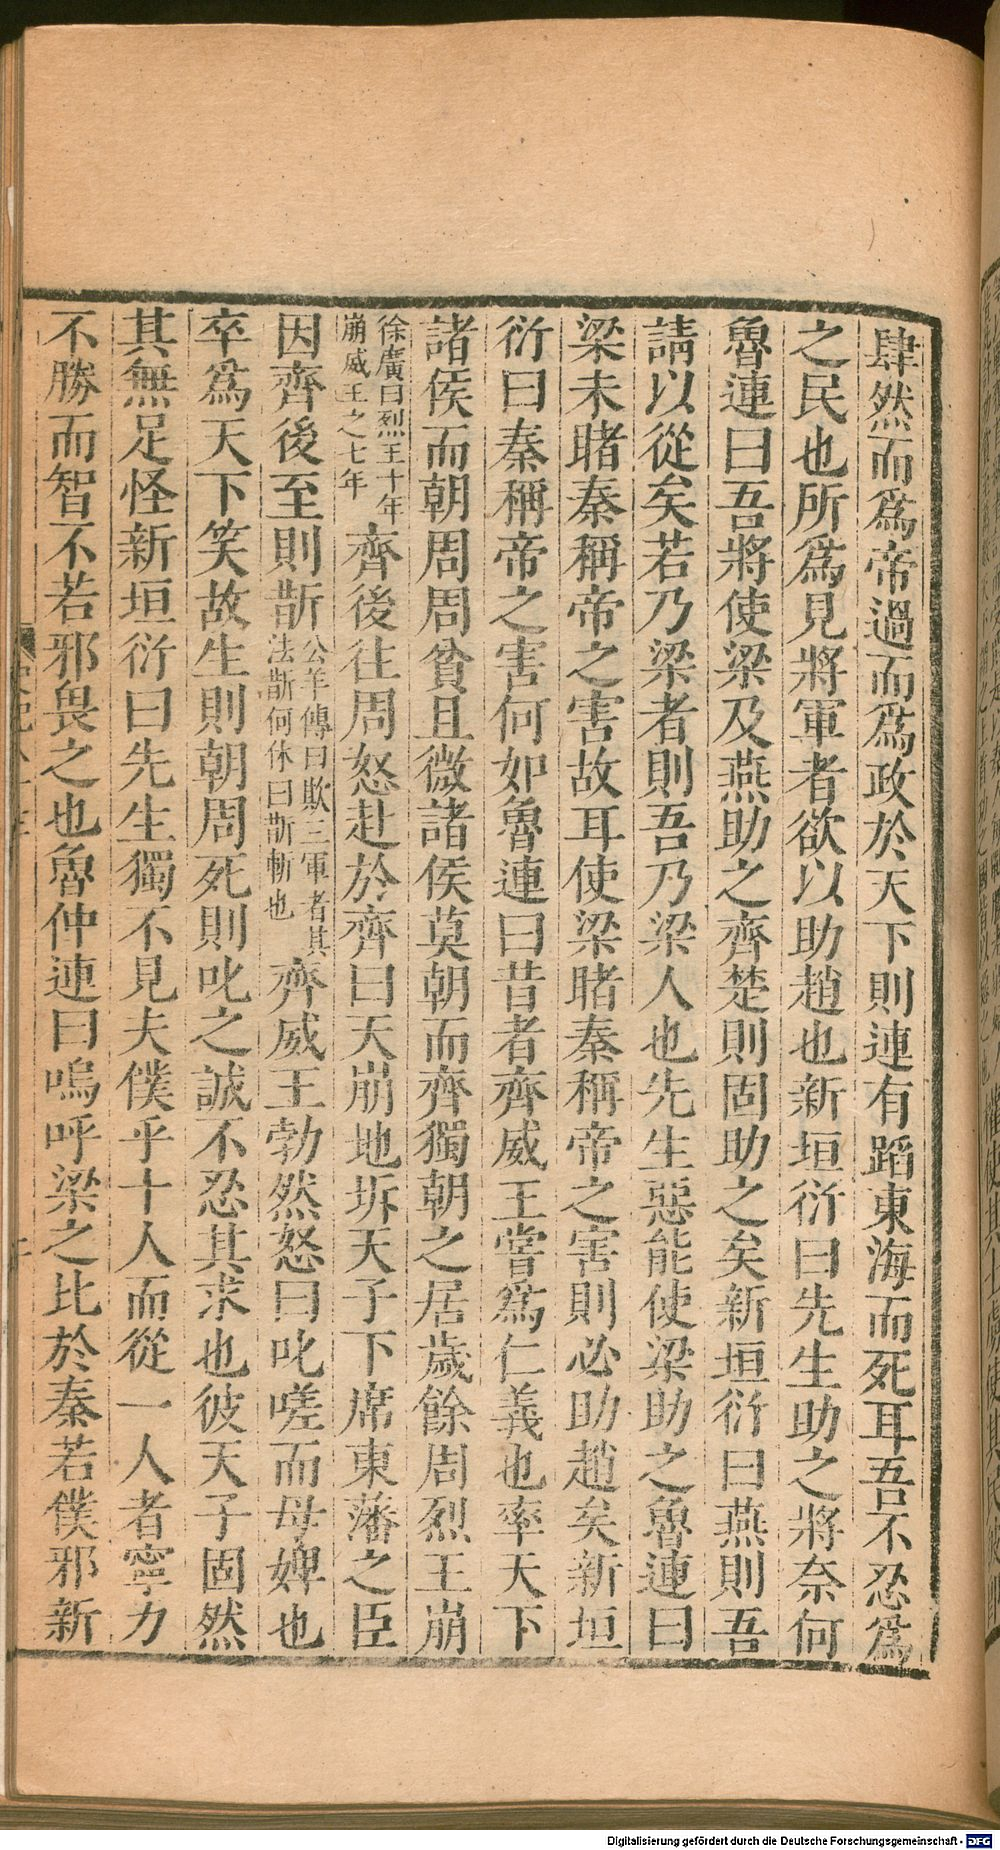 肆然而爲帝過而爲政於天下則連有蹈東海而死耳吾不忍爲
之民也所爲見將軍者欲以助趙也新垣衍曰先生助之將奈何
魯連曰吾將使梁及燕助之齊楚則固助之矣新垣衍曰燕則吾
請以從矣若乃梁者則吾乃梁人也先生惡能使梁助之魯連曰
梁未睹秦稱帝之害故耳使梁睹秦稱帝之害則必助趙矣新垣
衍曰秦稱帝之害何如魯連曰昔者齊威王嘗爲仁義也率天下
諸侯而朝周周貧且微諸侯莫朝而齊獨朝之居歲餘周烈王崩
徐廣曰烈王十年
崩威王之七年
齊後往周怒赴於齊曰天崩地坼天子下席東藩之臣
因齊後至則斮
公羊傳曰欺三軍者其
法斮何休曰斮斬也
齊威王勃然怒曰叱嗟而母婢也
卒爲天下笑故生則朝周死則叱之誠不忍其求也彼天子固然
其無足怪新垣衍曰先生獨不見夫僕乎十人而從一人者寧力
不勝而智不若邪畏之也魯仲連曰嗚呼梁之比於秦若僕邪新
Digitalisierung gefördert durch die Deutsche Forschungsgemeinschaft - DFG